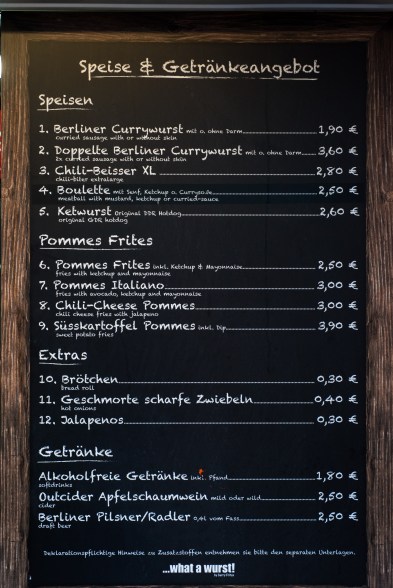 Speise & Getränkeangebot
Speisen
1. Berliner Currywurst mit o. ohne Darm 1,90 €
curried sausage with or without skin
2. Doppelte Berliner Currywurst mit o. ohne Darm 3,60 €
2x curried sausage with or without skin
3. Chili-Beisser XL 2,80 €
chili-biter extralarge
4. Boulette mit Senf, Ketchup o. Curry 2,50 €
meatball with mustard, ketchup or curried-sauce
5. Ketwurst Original DDR Hotdog 2,60 €
original GDR hotdog
Pommes Frites
6. Pommes Frites inkl. Ketchup & Mayonnaise 2,50 €
fries with ketchup and mayonnaise
7. Pommes Italiano 3,00 €
fries with avocado, ketchup and mayonnaise
8. Chili-Cheese Pommes 3,00 €
chili cheese fries with jalapeno
9. Süsskartoffel Pommes inkl. Dip 3,90 €
sweet potato fries
Extras
10. Brötchen 0,30 €
bread roll
11. Geschmorte scharfe Zwiebeln 0,40 €
hot onions
12. Jalapenos 0,30 €
Getränke
Alkoholfreie Getränke inkl. Pfand 1,80 €
softdrinks
Outcider Apfelschaumwein mild oder wild 2,50 €
cider
Berliner Pilsner/Radler 0,4l vom Fass 2,50 €
draft beer
Deklarationspflichtige Hinweise zu Zusatzstoffen entnehmen sie bitte den separaten Unterlagen.
...what a wurst!